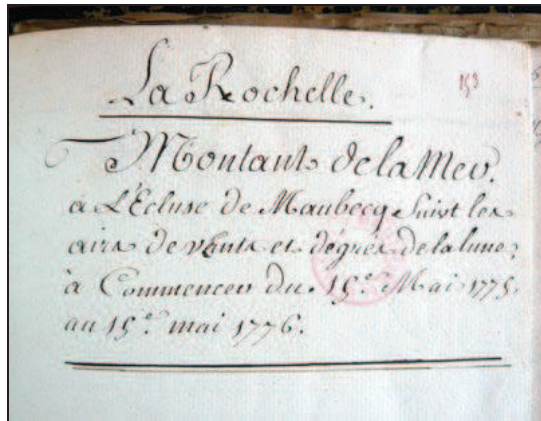 La Rochelle.
158
Montant de la Mer.
à L'Ecluse de Maubecq Suivt les
airs de vents et dégrés de la lune;
à Commencer du 15.e Mai 1775.
au 15.e mai 1776.